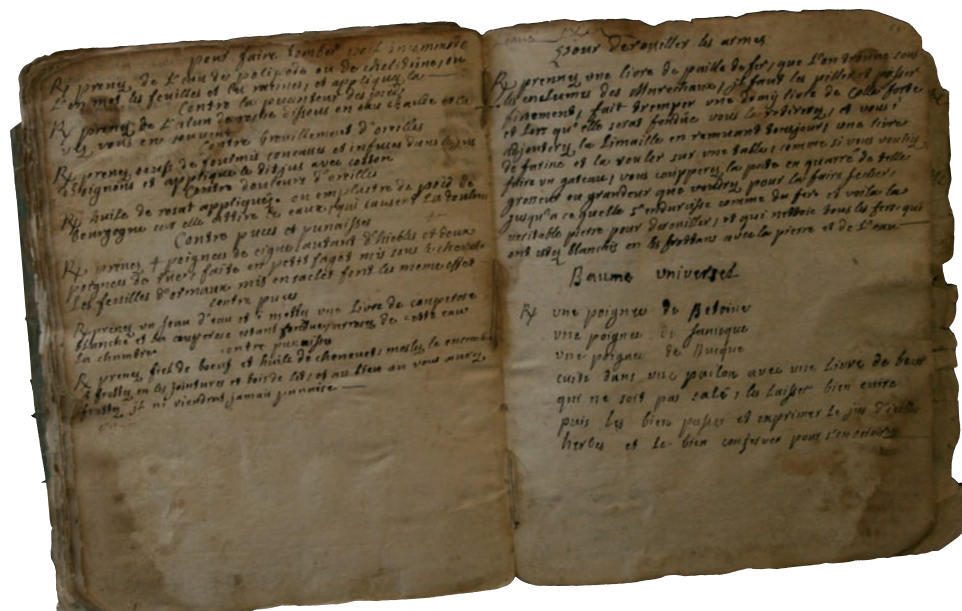 pour faire tomber poil incommode
℞ prenez de L'eau de polipode ou de chelidoine, ou
L'on met les feuilles et les racines, et appliquez la
Contre la puanteur des pieds
℞ prenez de L'alun de roche dissous en eau chaude et la
vez vous en souvent
Contre brouillement d'oreilles
℞ prenez oeufs de fourmis concassés et infusés dans le jus
d'oignons et applique le dessus avec cotton
Contre douleurs d'oreilles
℞ huile de rosat appliquez ou emplastre de poid de
bourgogne car elle attire les eaux, qui causent La douleur
Contre puces et punaises
℞ prenez 4 poignees de cigue, autant d'hiebles et deux
poignees de faites en petit fagot mis sous Le chevet
Les feuilles d'ormaux mis en paclés font les meme effet
contre puces
℞ prenez un seau d'eau et i mettez une Livre de couperose
blanche et la couperose estant fondue arrosez de cette eau
La chambre
contre punaises
℞ prenez fiel de boeuf et huile de chenevet; meslez le ensemble
et frottez en les jointures et bois de lit; et au lieu ou vous aurez
frotté il ni viendrat jamais punaise
pour derouiller les armes
℞ prennez une livre de paille de fer, que L'on trouve sous
les enclumes des Marechaux, il faut la piller et passer
finement, fait tremper une demy livre de Colle forte
et Lors qu'elle serat fondue vous la retirerez, et vous i
adjouterez la Limaille en remuant tousjours, une livre
de farine et la rouler sur une table, comme si vous vouliez
faire un gateau, vous coupperez la paste en quarré de telle
grosseur ou grandeur que voudrez, pour la faire secher
jusqu'a ce quelle s'endurcisse comme du fer et voila la
veritable pierre pour derouiller, et qui nettoie tous les fers qui
ont estez blanchis en les frottans avec la pierre et de L'eau
Baume universel
℞ une poignee de Betoine
une poignee de Sanicque
une poignee de Bugue
cuite dans une pailon avec une Livre de beur
qui ne soit pas salé; les laisser bien cuire
puis les bien passer et exprimer Le jus d'icelle
herbes et Le bien conserver pour s'en servir